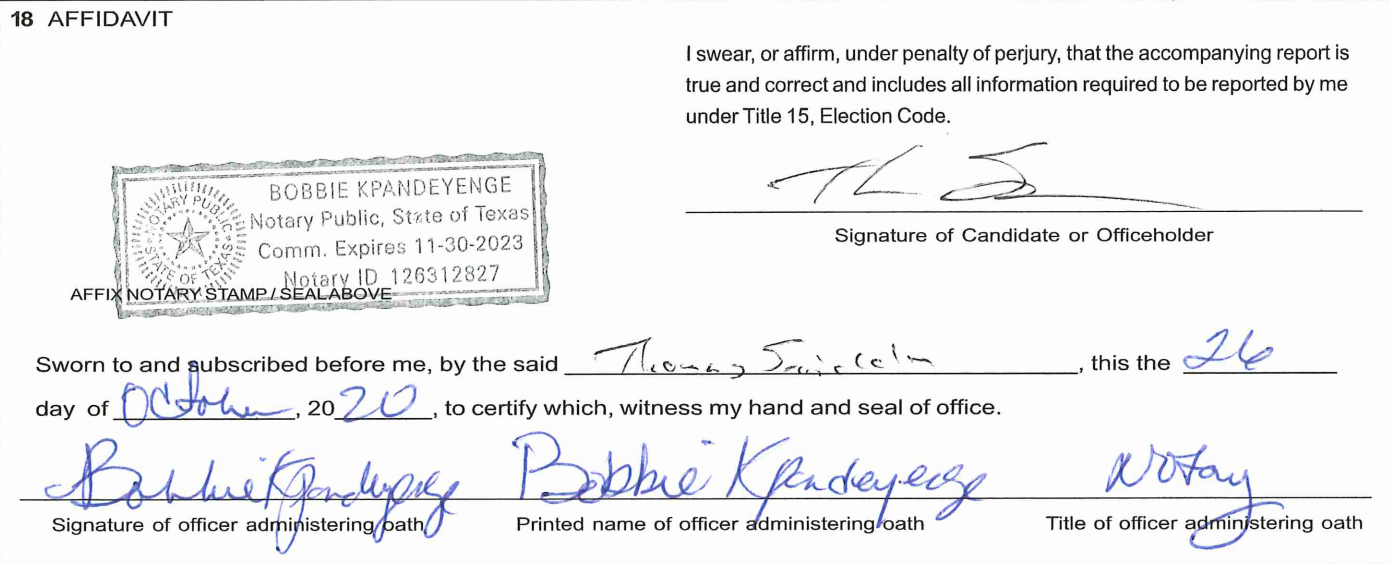 18 AFFIDAVIT
I swear, or affirm, under penalty of perjury, that the accompanying report is
true and correct and includes all information required to be reported by me
under Title 15, Election Code.
Signature of Candidate or Officeholder
BOBBIE KPANDEYENGE
Notary Public, State of Texas
Comm. Expires 11-30-2023
Notary ID 126312827
NOTARY PUBLIC
STATE OF TEXAS
AFFIX NOTARY STAMP / SEAL ABOVE
Sworn to and subscribed before me, by the said Thomas, this the 26
day of October, 2020, to certify which, witness my hand and seal of office.
Bobbie Kpandeyenge Bobbie Kpandeyenge Notary
Signature of officer administering oath Printed name of officer administering oath Title of officer administering oath